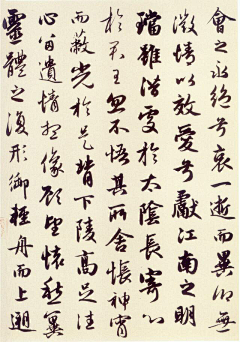 會之永絕兮哀一逝而異鄉無
微情以效愛兮獻江南之明
璫雖潛處於太陰長寄心
於君王忽不悟其所舍悵神宵
而蔽光於是背下陵高足往
心留遺情想像顧望懷愁冀
靈體之復形御輕舟而上遡